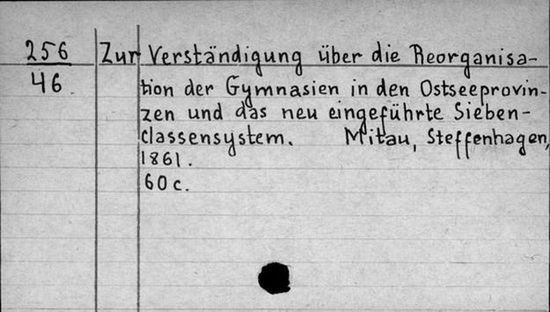 256 Zur Verständigung über die Reorganisa-
46. tion der Gymnasien in den Ostseeprovin-
zen und das neu eingeführte Sieben-
classensystem. Mitau, Steffenhagen,
1861.
60 c.